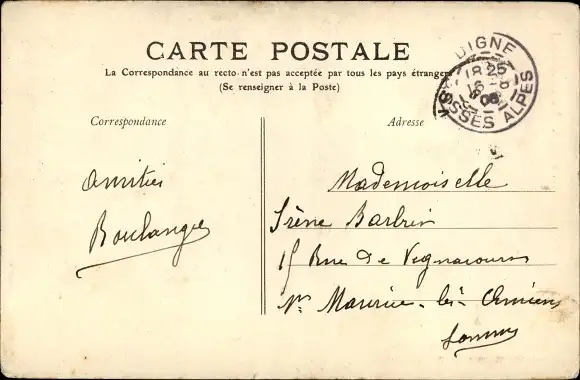 CARTE POSTALE
La Correspondance au recto n'est pas acceptée par tous les pays étrangers
(Se renseigner à la Poste)
DIGNE
18 25
16
06
BSSES ALPES
Correspondance
Adresse
Amitiés
Boulanger
Mademoiselle
Irène Barbier
15 Rue de Vignacourt
Maurice-lès-Amiens
Somme